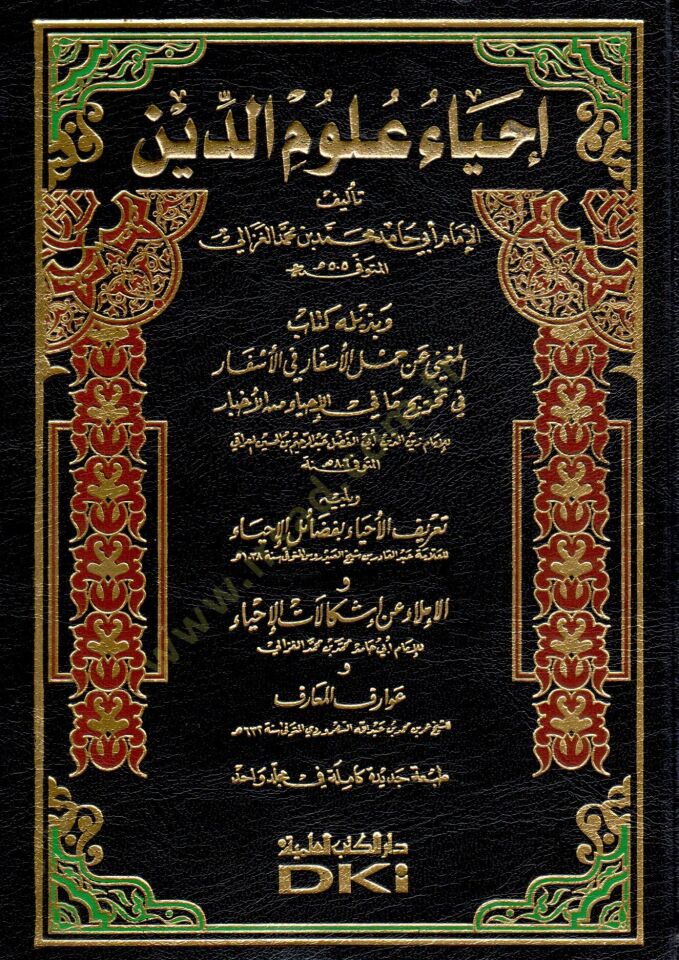 إحياء علوم الدين
تأليف
الإمام أبي حامد محمد بن محمد الغزالي
المتوفى ٥٠٥ هـ
وبذيله كتاب
المغني عن حمل الأسفار في الأسفار
في تخريج ما في الإحياء من الأخبار
للإمام زين الدين أبي الفضل عبد الرحيم بن الحسين العراقي
المتوفى ٨٠٦ هـ سنة
ويليه
تعريف الأحياء بفضائل الإحياء
للعلامة عبد القادر بن شيخ العيدروس المتوفى سنة ١٠٣٨ هـ
و
الإملاء عن إشكالات الإحياء
للإمام أبي حامد محمد بن محمد الغزالي
و
عوارف المعارف
للشيخ عمر بن محمد بن عبد الله السهروردي المتوفى سنة ٦٣٢ هـ
طبعة جديدة كاملة في مجلد واحد
دار الكتب العلمية
DKi